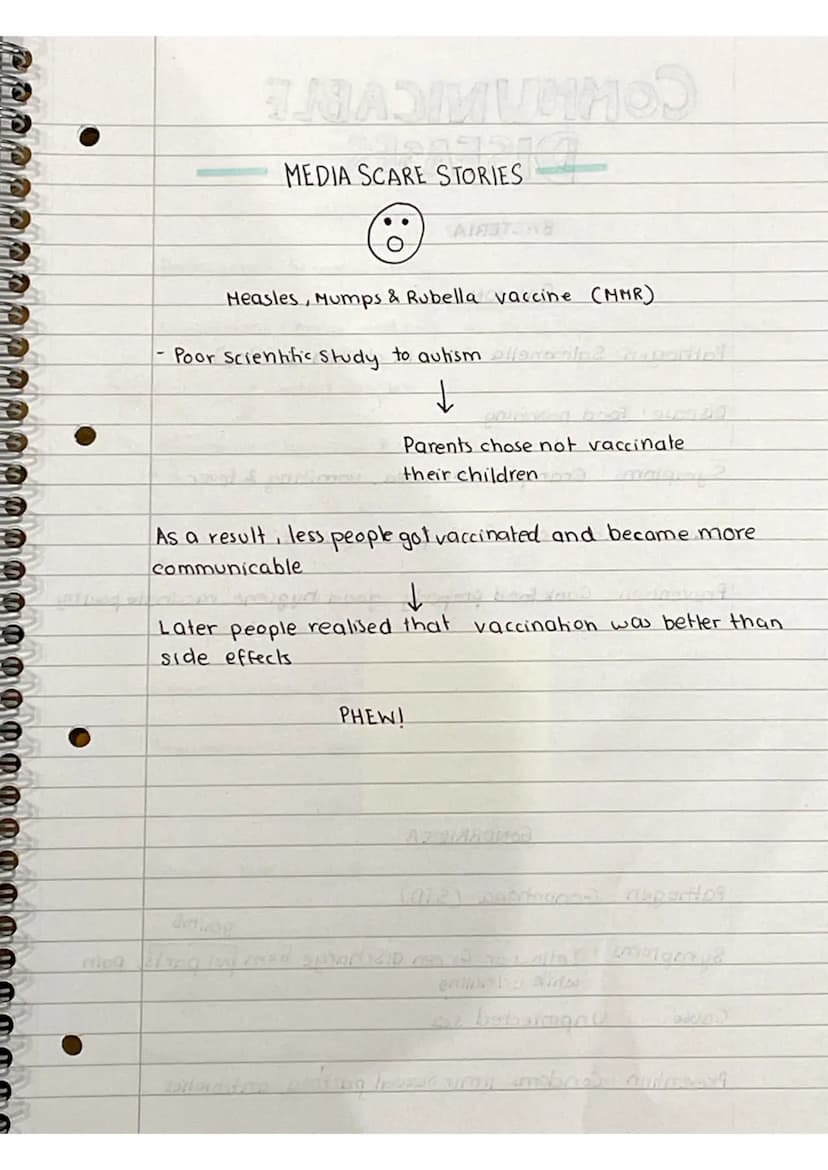 MEDIA SCARE STORIES
Measles, Mumps & Rubella vaccine (MMR)
- Poor scientific study to autism
↓
Parents chose not vaccinate
their children
As a result, less people got vaccinated and became more
communicable
↓
Later people realised that vaccination was better than
side effects
PHEW!